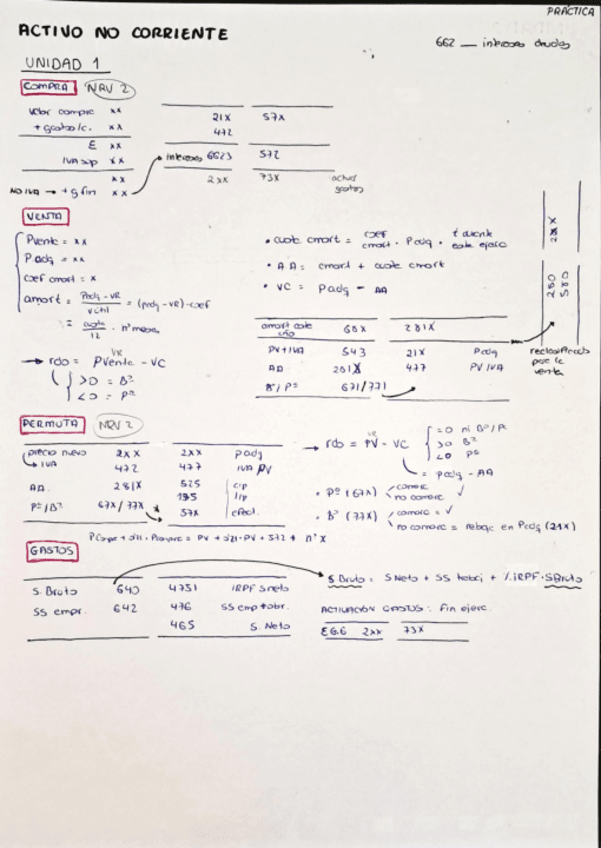 PRÁCTICA
ACTIVO NO CORRIENTE
662 — intereses deudas
UNIDAD 1
COMPRA NRV 2
Valor compra xx
+ gastos/c. xx
Σ xx
IVA sop xx
xx
NO IVA → + g fin xx
21X 57X
472
intereses 6623 572
2xx 73X activar gastos
VENTA
Pventa = xx
P adq = xx
coef amort = x
amort = Padq - VR / v útil = (padq - VR) · coef
= cuota / 12 · nº meses
→ rdo = Pventa - VC
VR
>0 = Bº
<0 = Pª
• cuota amort = coef amort · Padq · t durante este ejerc
• AA = amort + cuota amort
• VC = Padq - AA
amort este año 68X 281X
PV+IVA 543 21X Padq
AA 281X 477 PV IVA
Bº/Pª 671/771
28X
280
580
reclasificado para la venta
PERMUTA NRV 2
precio nuevo 2XX 2XX Padq
IVA 472 477 IVA PV
AA. 281X 525 c/p
195 l/p
Pª/Bº 67X/77X 57X efect.
→ rdo = PV - VC
VR
=0 ni Bº/Pª
>0 Bº
<0 Pª
= padq - AA
• Pª (67X) comerc
no comerc ✓
• Bº (77X) comerc = ✓
no comerc = rebaja en Padq (21X)
GASTOS
S. Bruto 640 4751 IRPF S neto
SS empr. 642 476 SS emp + obr.
465 S. Neto
S Bruto = S Neto + SS trabaj + % IRPF · SBruto
ACTIVACIÓN GASTOS: Fin ejerc.
2xx 73X